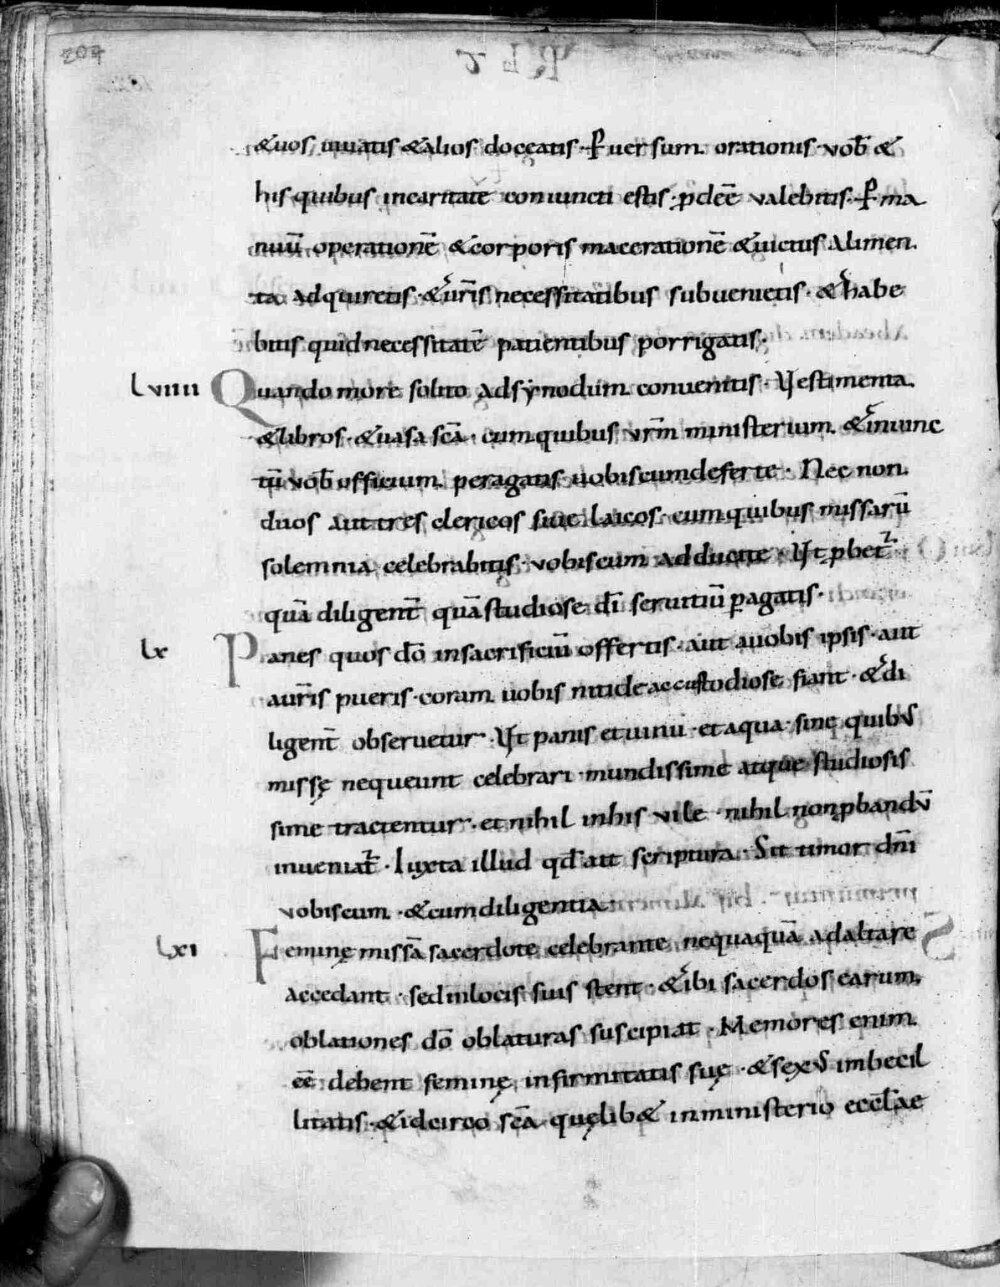 &uos uiuatis &alios doceatis · P̱ uersum orationis · vob̄ &
his quibus incaritate coniuncti estis · p̱dee̅ valebitis · P̱ ma
nuū operatione̅ &corporis maceratione̅ &uictus alimen
ta adquiretis · & ur̅is necessitatibus subuenietis · & habe
bitis quid necessitate̅ patientibus porrigatis ·
Lviiii Quando more solito adsynodum conuenitis · Vestimenta
&libros · &uasa sc̄a · cumquibus vr̅m ministerium & iniunc
tū vob̄ officium peragatis uobiscumdeferte · Nec non
duos aut tres clericos siue laicos · cum quibus missarū
solemnia celebrabitis · vobiscum adducite · Vt p̱bet᷑
quā diligent̅ quā studiose dī seruitiū p̱agatis ·
Lx Panes quos dō insacrificiū offertis · aut auobis ipsis · aut
aur̅is pueris · coram uobis nitide ac custodiose fiant · & di
ligent̅ obseruetur · Vt panis et uinū · et aqua · sine quibus
missę nequeunt celebrari · mundissime atque studiosis
sime tractentur · et nihil inhis vile · nihil non p̱bandū
inueniat᷑ · Iuxta illud qd̄ ait scriptura · Sit timor dn̄i
vobiscum · &cumdiligentia ·
Lxi Feminę missā sacerdote celebrante nequaquā adaltare
accedant · sed inlocis suis stent · & ibi sacerdos earum
oblationes dō oblaturas suscipiat · Memores enim
ee̅ debent feminę infirmitatis suę · &sexus imbecil
litatis · &idcirco sc̄a quęlib& inministerio eccl̄ae